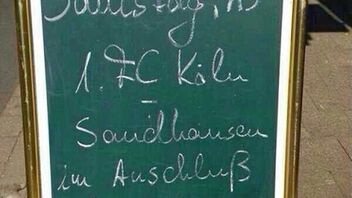 1. FC Köln
-
Sandhausen
im Anschluß